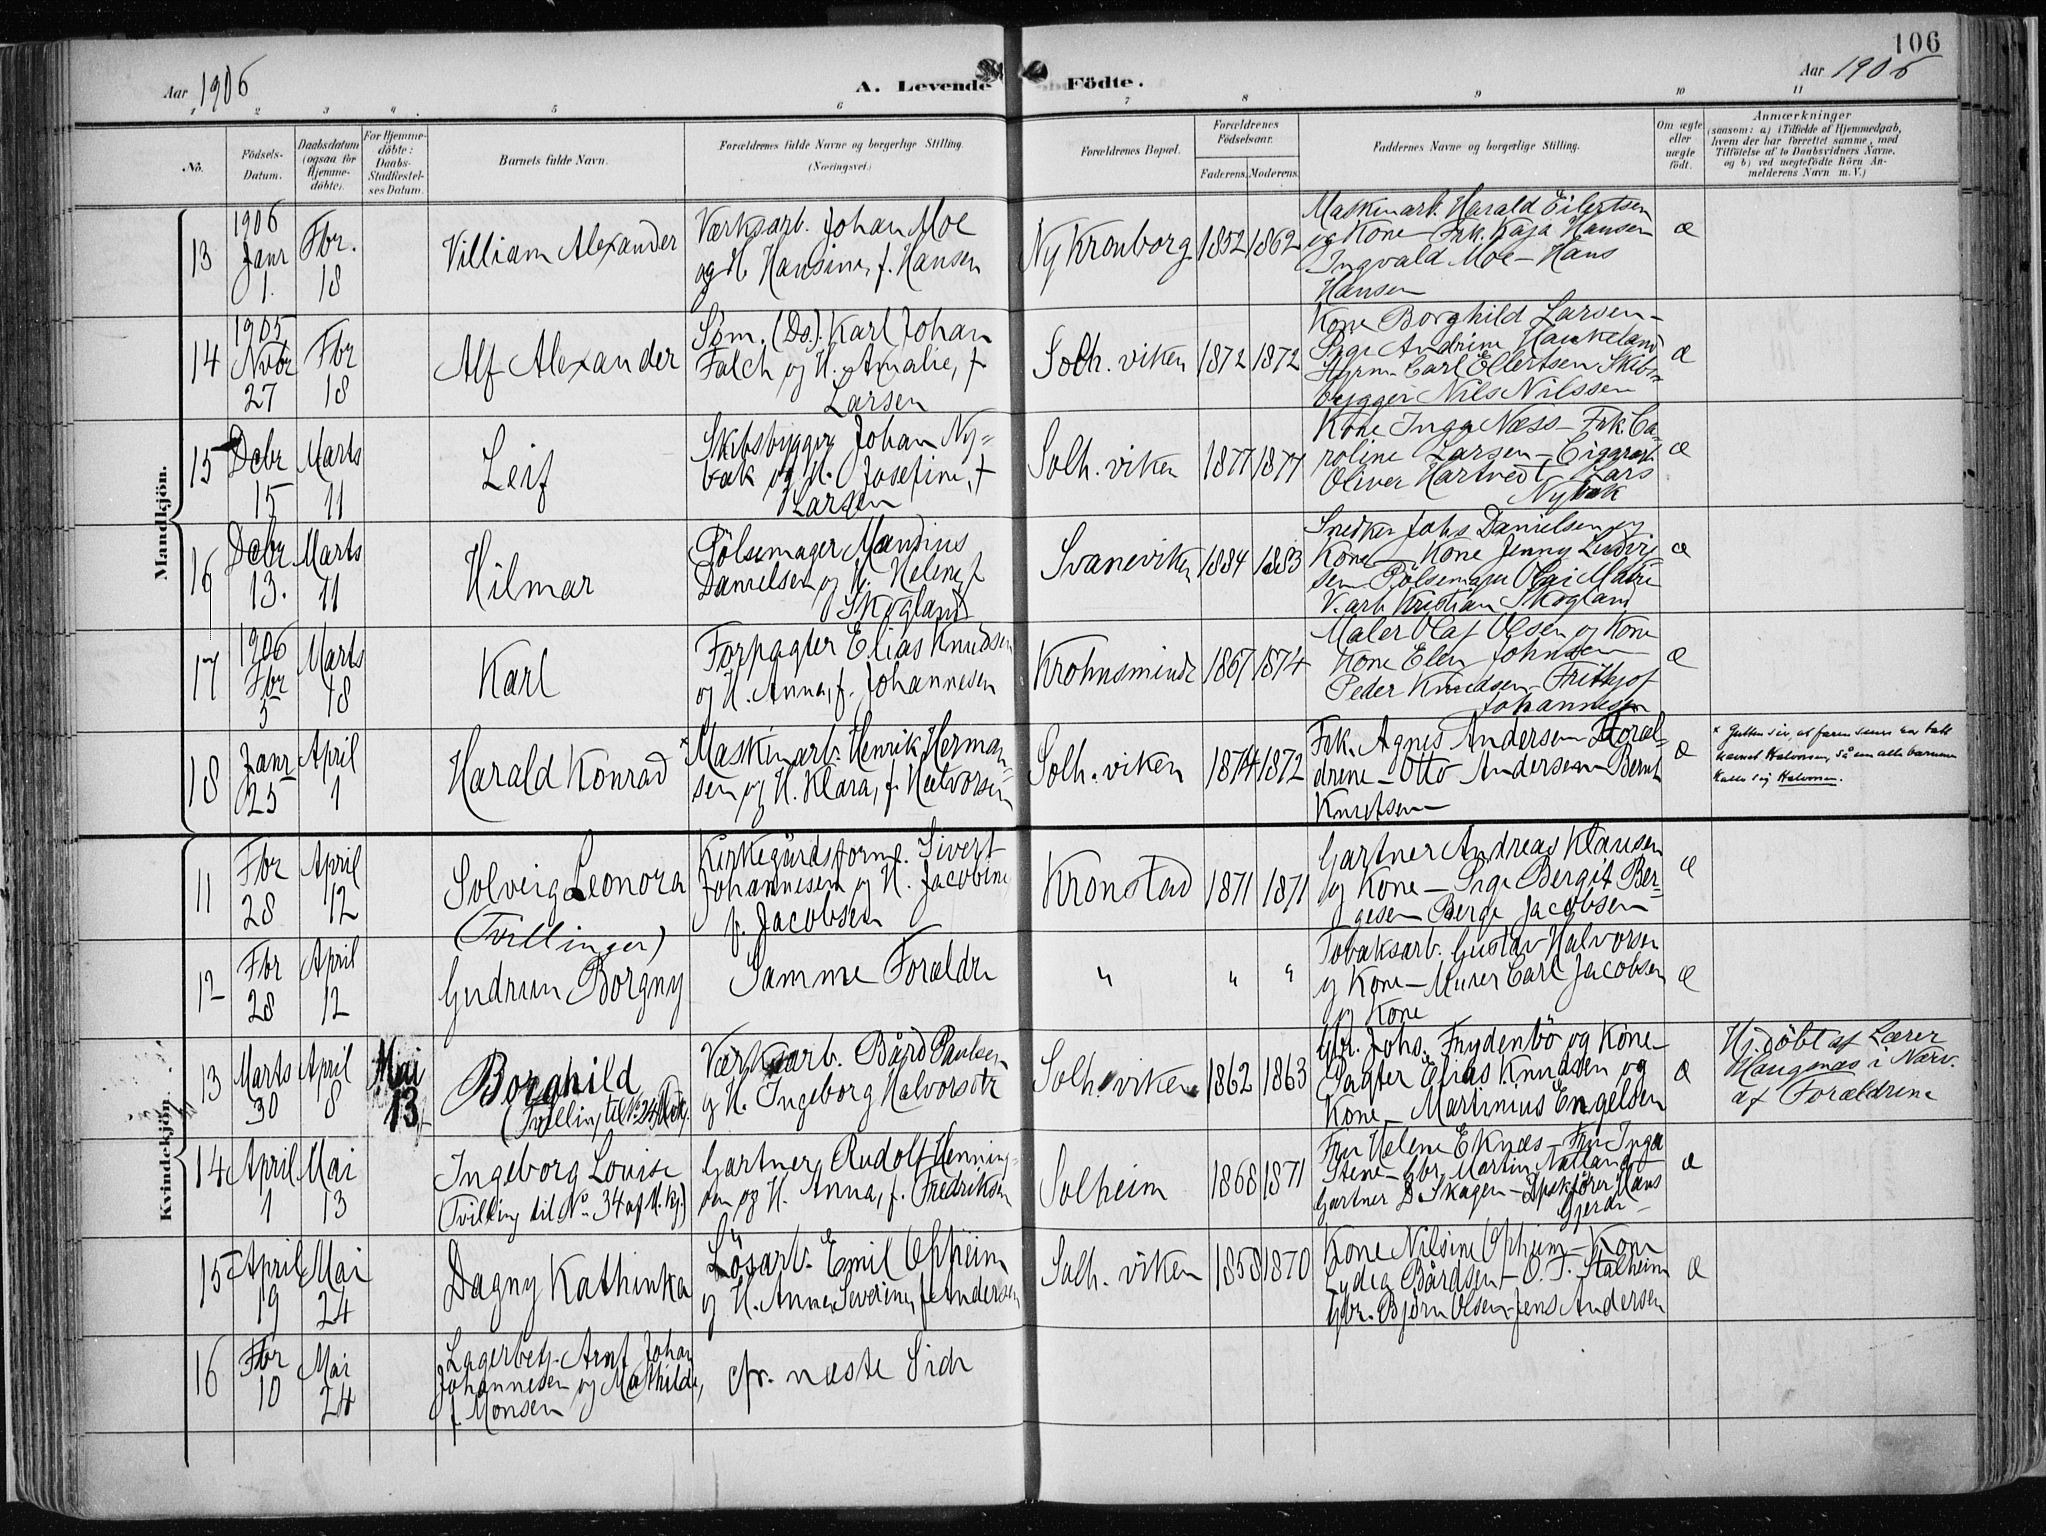 106
Aar 1906
A. Levende Födte.
Aar 1906
1 2 3 4 5 6 7 8 9 10 11
No.
Födsels-
Datum.
Daabsdatum
(ogsaa for
Hjemme-
döbte).
For Hjemme-
döbte:
Daabs-
Stadfæstel-
ses Datum.
Barnets fulde Navn.
Forældrenes fulde Navne og borgerlige Stilling.
(Næringsvei.)
Forældrenes Bopæl.
Forældrenes
Födselsaar.
Faderens. Moderens.
Faddernes Navne og borgerlige Stilling.
Om ægte
eller
uægte
födt.
Anmærkninger
(saasom: a) i Tilfælde af Hjemmedaab,
hvem der har forrettet samme, med
Tilföielse af to Daabsvidners Navne,
og b) ved uægtefödte Börn An-
melderens Navn m. V.)
Mandkjön.
13
1906
Janr
1.
Fbr.
18
Villiam Alexander
Værksarb. Johan Moe
og H. Hansine, f. Hansen
Ny Kronborg
1852 1862
Maskinarb. Harald Eilertsen
og Kone - Frk. Kaja Hansen
Ingvald Moe - Hans
Hansen
æ
14
1905
Nvbr
27
Fbr
18
Alf Alexander
Söm. (Ds.) Karl Johan
Falch og H. Amalie, f
Larsen
Solh. viken
1872 1872
Kone Borghild Larsen -
Pige Andrine Haukeland
Styrm. Carl Ellertsen Skibs-
bygger Nils Nilssen
æ
15
Dcbr
15
Marts
11
Leif
Skibsbygger Johan Ny-
bak og H. Josefine, f
Larsen
Solh. viken
1877 1877
Kone Inga Næss - Frk. Ca-
roline Larsen - Cigararb.
Oliver Hartvedt Lars
Nybak
æ
16
Dcbr
13.
Marts
11
Hilmar
Pölsemager Mandius
Danielsen og H. Helene f
Skogland
Svaneviken
1884 1883
Snedker Johs Danielsen og
Kone - Kone Jenny Ludvig-
sen Pölsemager Olai Matre
V.arb Kristian Skogland
æ
17
1906
Fbr
5
Marts
18
Karl
Forpagter Elias Knudsen
og H. Anna, f. Johannesen
Krohnsminde
1867 1874
Maler Olaf Olsen og Kone
Kone Elen Johnsen
Peder Knudsen - Frithjof
Johannesen
æ
18
Janr
25
April
1
Harald Konrad
* Maskinarb. Henrik Herman-
sen og H. Klara, f. Halvorsen
Solh. viken
1874 1872
Frk. Agnes Andersen Foræl-
drene - Otto Andersen Bernt
Knutsen -
æ
* Gutten sier, at faren senere har tatt
navnet Halvorsen, så en alle barnene
kalle sig Halvorsen.
Kvindekjön.
11
Fbr
28
April
12
Solveig Leonora
(Tvillinger)
Kirkegårdsform. Sivert
Johannesen og H. Jacobine
f. Jacobsen
Kronstad
1871 1871
Gartner Andreas Klausen
og Kone - Pige Bergit Ber-
gesen Berge Jacobsen
æ
12
Fbr
28
April
12
Gudrun Borgny
Samme Forældre
" " "
Tobaksarb. Gustav Halvorsen
og Kone - Murer Carl Jacobsen
og Kone
æ
13
Marts
30
April
8
Mai
13
Borghild
(Tvilling til No 24 M.kj.
Værksarb. Bård Paulsen
og H. Ingeborg Halvorsdtr
Solh. viken
1862 1863
Gbr. Johs. Frydenbö og Kone -
Pagter Elias Knudsen og
Kone - Martinius Engelsen
æ
Hj.döbt af Lærer
Haugenæs i Nærv.
af Forældrene
14
April
1
Mai
13
Ingeborg Louise
(Tvilling til No. 34 af M. kj.)
Gartner Rudolf Henning-
sen og H. Anna, f. Fredriksen
Solheim
1868 1871
Fru Helene Eknæs - Fru Inga
Stene - Gbr. Martin Natland
Gartner D Skagen - Opskjörer Hans
Gjerde -
æ
15
April
19
Mai
24
Dagny Kathinka
Lösarb. Emil Opheim
og H. Anne Severine, f Andersen
Solh. viken
1858 1870
Kone Nilsine Opheim - Kone
Lydia Bårdsen - O. J. Stalheim
Gbr. Björn Olsen - Jens Andersen
æ
16
Fbr
10
Mai
24
Lagerbetj. Arnt Johan
Johannesen og Mathilde,
f. Monsen
cfr. næste Side